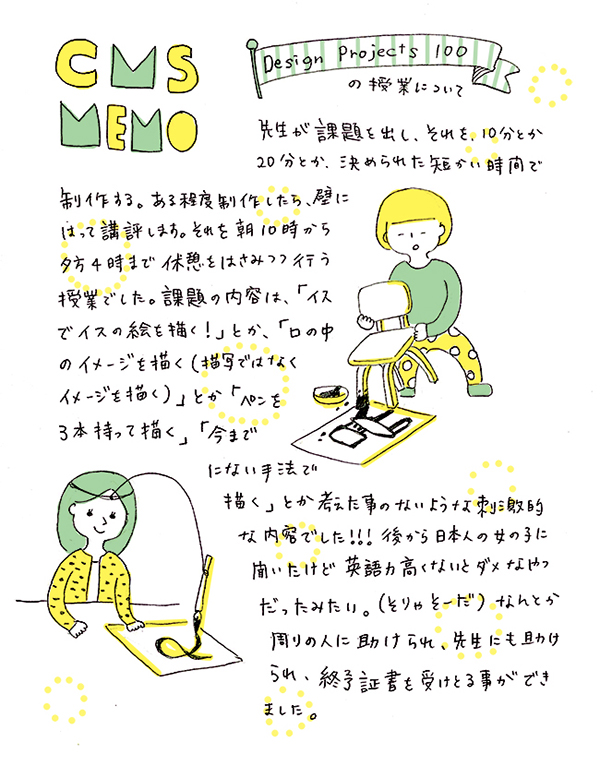 CMS
MEMO
Design Projects 100
の授業について
先生が課題を出し、それを、10分とか
20分とか、決められた短かい時間で
制作する。ある程度制作したら、壁に
はって講評します。それを朝10時から
夕方4時まで休憩をはさみつつ行う
授業でした。課題の内容は、「イス
でイスの絵を描く!」とか、「口の中
のイメージを描く(描写ではなく
イメージを描く)」とか「ペンを
3本持って描く」「今まで
にない手法で
描く」とか考えた事のないような刺激的
な内容でした!!! 後から日本人の女の子に
聞いたけど 英語力高くないとダメなやつ
だったみたい。(そりゃそーだ) なんとか
周りの人に助けられ、先生にも助け
られ、終了証書を受けとる事ができ
ました。